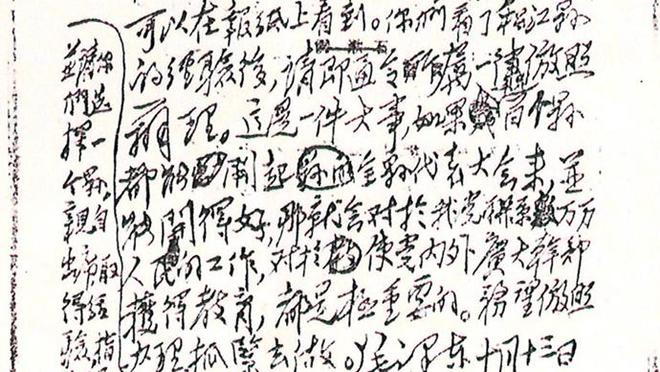 可以在報紙上看到。你們看了松江縣
的經驗後,請即通令所屬一律仿照
辦理。這是一件大事,如果百個縣
都能開起全縣代表大會來,並
能開得好,那就會對於我黨聯系數萬萬
人民的工作,對於使黨內外廣大幹部
獲得教育,都是極重要的。務望仿照
辦理抓緊去做。毛澤東 十月十三日
並你們選擇一個縣,親自出席,取得經驗,指